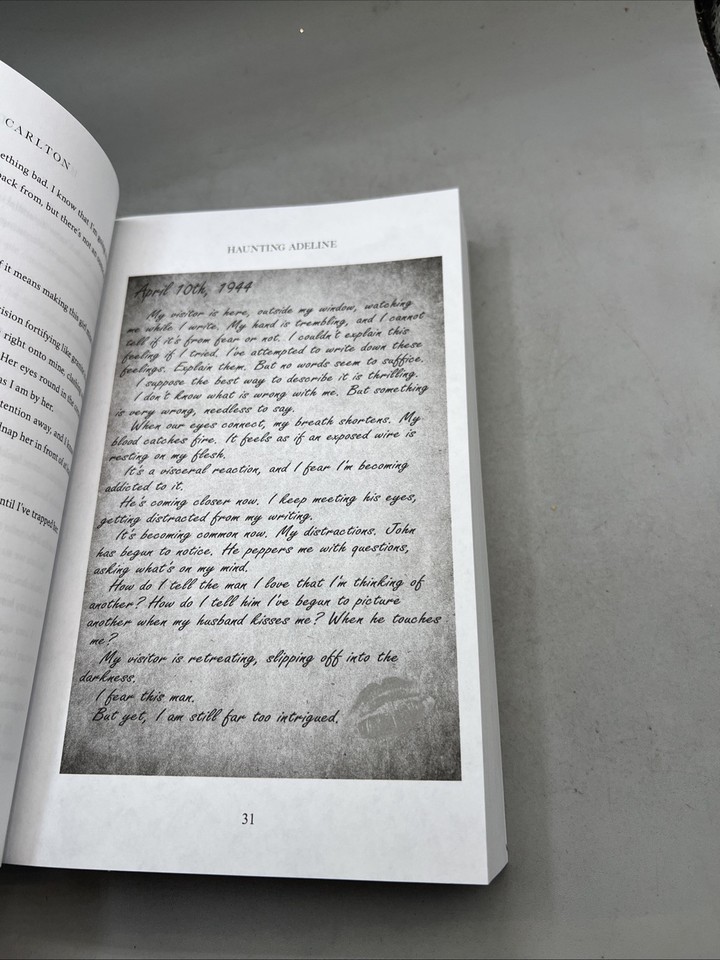 CARLTON
ething bad. I know that I'm
ack from, but there's not an
f it means making this girl
cision fortifying like
right onto mine,
Her eyes round in the
as I am by her.
tention away, and I
dnap her in front of
ntil I've trapped her
HAUNTING ADELINE
April 10th, 1944
My visitor is here, outside my window, watching
me while I write. My hand is trembling, and I cannot
tell if it's from fear or not. I couldn't explain this
feeling if I tried. I've attempted to write down these
feelings. Explain them. But no words seem to suffice.
I suppose the best way to describe it is thrilling.
I don't know what is wrong with me. But something
is very wrong, needless to say.
When our eyes connect, my breath shortens. My
blood catches fire. It feels as if an exposed wire is
resting on my flesh.
It's a visceral reaction, and I fear I'm becoming
addicted to it.
He's coming closer now. I keep meeting his eyes,
getting distracted from my writing.
It's becoming common now. My distractions. John
has begun to notice. He peppers me with questions,
asking what's on my mind.
How do I tell the man I love that I'm thinking of
another? How do I tell him I've begun to picture
another when my husband kisses me? When he touches
me?
My visitor is retreating, slipping off into the
darkness.
I fear this man.
But yet, I am still far too intrigued.
31